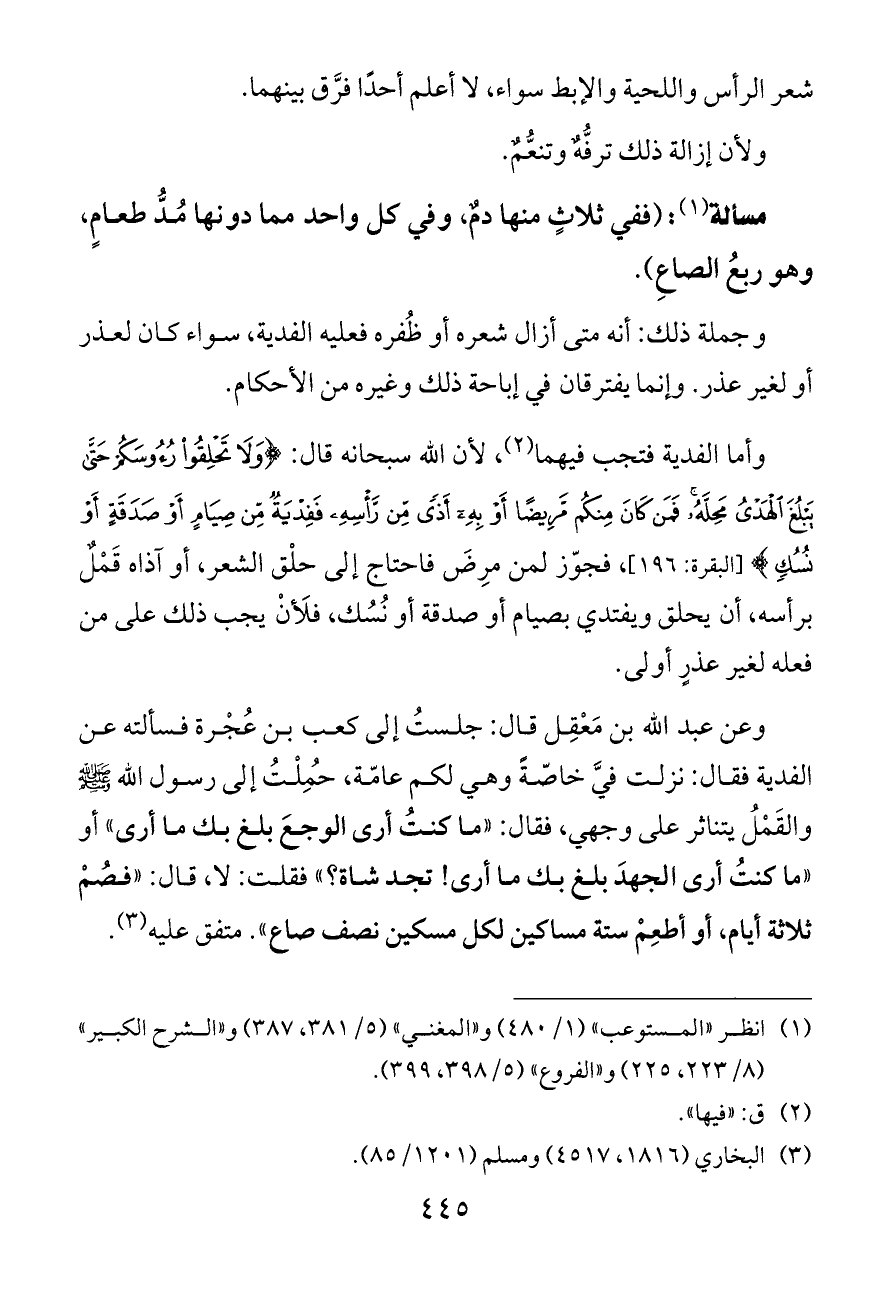 شعر الرأس واللحية والإبط سواء، لا أعلم أحدًا فرَّق بينهما.
ولأن إزالة ذلك ترفُّهٌ وتنعُّمٌ.
مسالة(١): (ففي ثلاثٍ منها دمٌ، وفي كل واحد مما دونها مُدُّ طعامٍ،
وهو ربعُ الصاعِ).
وجملة ذلك: أنه متى أزال شعره أو ظُفره فعليه الفدية، سواء كان لعذر
أو لغير عذر. وإنما يفترقان في إباحة ذلك وغيره من الأحكام.
وأما الفدية فتجب فيهما(٢)، لأن الله سبحانه قال: ﴿وَلَا تَحْلِقُوا۟ رُءُوسَكُمْ حَتَّىٰ
يَبْلُغَ ٱلْهَدْىُ مَحِلَّهُۥۚ فَمَن كَانَ مِنكُم مَّرِيضًا أَوْ بِهِۦٓ أَذًى مِّن رَّأْسِهِۦ فَفِدْيَةٌ مِّن صِيَامٍ أَوْ صَدَقَةٍ أَوْ
نُسُكٍ﴾ [البقرة: ١٩٦]، فجوّز لمن مرِضَ فاحتاج إلى حلْق الشعر، أو آذاه قَمْلٌ
برأسه، أن يحلق ويفتدي بصيام أو صدقة أو نُسُك، فلَأنْ يجب ذلك على من
فعله لغير عذرٍ أولى.
وعن عبد الله بن مَعْقِل قال: جلستُ إلى كعب بن عُجْرة فسألته عن
الفدية فقال: نزلت فيَّ خاصّةً وهي لكم عامّة، حُمِلْتُ إلى رسول الله ﷺ
والقَمْلُ يتناثر على وجهي، فقال: «ما كنتُ أرى الوجعَ بلغ بك ما أرى» أو
«ما كنتُ أرى الجهدَ بلغ بك ما أرى! تجد شاة؟» فقلت: لا، قال: «فصُمْ
ثلاثة أيام، أو أطعِمْ ستة مساكين لكل مسكين نصف صاع». متفق عليه(٣).
(١) انظر «المستوعب» (١/ ٤٨٠) و«المغني» (٥/ ٣٨١، ٣٨٧) و«الشرح الكبير»
(٨/ ٢٢٣، ٢٢٥) و«الفروع» (٥/ ٣٩٨، ٣٩٩).
(٢) ق: «فيها».
(٣) البخاري (١٨١٦، ٤٥١٧) ومسلم (١٢٠١/ ٨٥).
٤٤٥